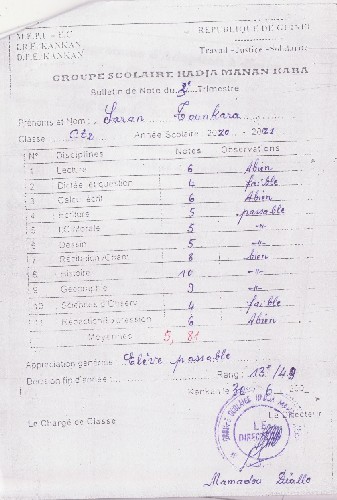 M.E.P.U - E.C REPUBLIQUE DE GUINEE
I.R.E KANKAN
D.P.E KANKAN Travail -Justice -Solidarité
GROUPE SCOLAIRE HADJA MANAN KABA
Bulletin de Note du 3e Trimestre
Prénoms et Nom : Saran Tounkara
Classe CE2 Année Scolaire 2020 - 2021
N° Disciplines Notes Observations
1 Lecture 6 Abien
2 Dictée et question 4 faible
3 Calcul écrit 6 Abien
4 Ecriture 5 passable
5 I.C Morale 5 -"-
6 Dessin 5 -"-
7 Récitation /Chant 8 bien
8 Histoire 10 -"-
9 Géographie 9 -"-
10 Sciences d'Observ 4 faible
11 Rédaction/Expression 6 Abien
Moyennes 5,81
Appréciation générale : Elève passable
Décision fin d'année : Rang : 13e/49
Kankan le 30 - 6 - 202
Le Chargé de Classe Le Directeur
GROUPE SCOLAIRE HADJA
LE DIRECTEUR
Mamadou Diallo